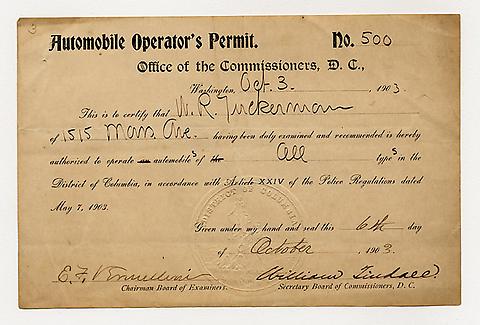 3
Automobile Operator's Permit. No. 500
Office of the Commissioners, D. C.,
Washington, Oct. 3, 1903
This is to certify that W. R. Tuckerman
of 1515 Mass Ave. having been duly examined and recommended is hereby
authorized to operate an automobiles of the All types in the
District of Columbia, in accordance with Article XXIV of the Police Regulations dated
May 7, 1903.
Given under my hand and seal this 6th day
of October 1903
E. F. William Tindall.
Chairman Board of Examiners. Secretary Board of Commissioners, D. C.